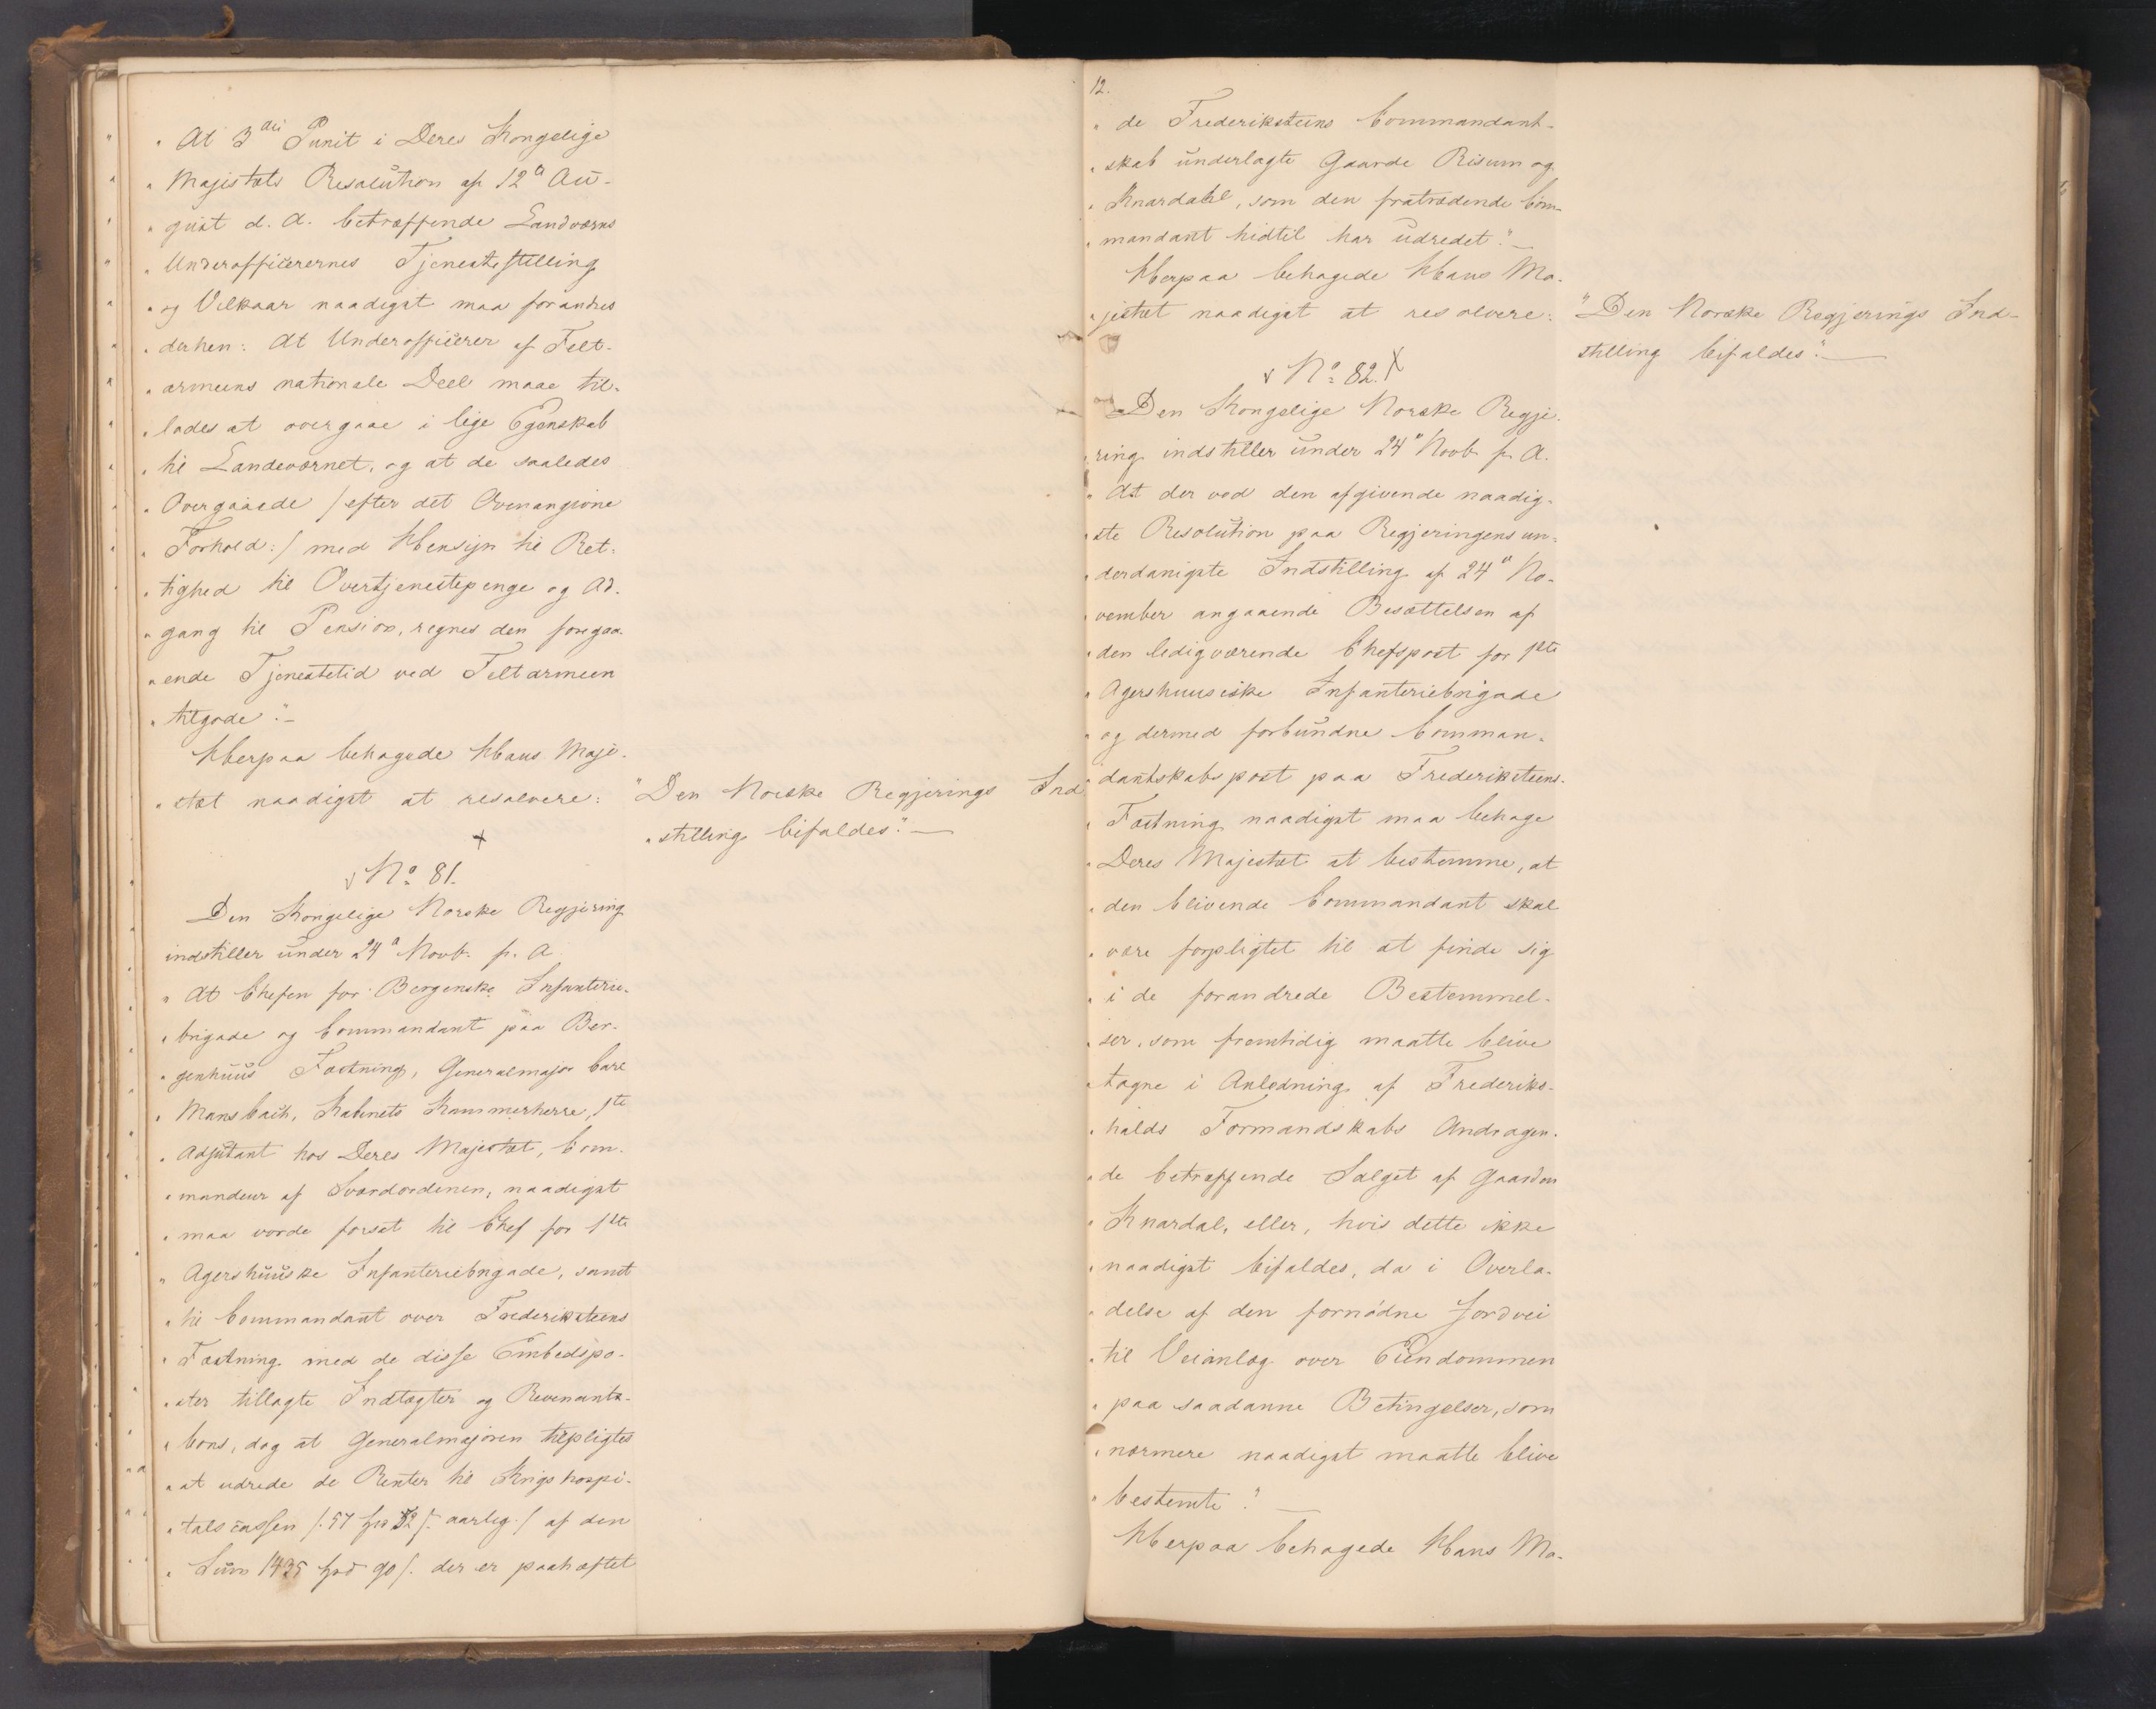 " At 3die Punct i Deres Kongelige
" Majestæts Resolution af 12te Au-
" gust d. A. betræffende Landværns
" Underofficerernes Tjenestestilling
" og Vilkaar naadigst maa forandres
" derhen: At Underofficerer af Felt-
" armeens nationale Deel maae til-
" lades at overgaae i lige Egenskab
" til Landeværnet, og at de saaledes
" Overgaaede /: efter det Ovenangivne
" Forhold :/ med Hensyn til Ret-
" tighed til Overtjenestepenge og Ad-
" gang til Pension, regnes den foregaa-
" ende Tjenestetid ved Feltarmeen
" tilgode". –
Herpaa behagede Hans Maje-
" stæt naadigst at resolvere:
" Den Norske Regjerings Ind
" stilling bifaldes". —
No 81.
Den Kongelige Norske Regjering
indstiller under 24de Novb. p. A.
" At Chefen for Bergenske Infanterie-
" brigade og Commandant paa Ber-
" genhuus Fæstning, Generalmajor Carl
" Mansbach, Kabinets Kammerherre, 1ste
" Adjutant hos Deres Majestæt, Com-
" mandeur af Sværdordenen, naadigst
" maa vorde forsat til Chef for 1ste
" Agershuuske Infanteriebrigade, samt
" til Commandant over Frederiksteens
" Fæstning med de disse Embedspo-
" ster tillagte Indtægter og Revenants-
" bons, dog at Generalmajoren tilpligtes
" at udrede de Renter til Krigshospi-
" talscassen /: 57 Spd 52 s. aarlig :/ af den
" Sum 1435 Spd 90 s. der er paahæftet
12.
" de Frederiksteens Commandant-
" skab underlagte Gaarde Risum og
" Knardahl, som den fratrædende Com-
" mandant hidtil har udredet". –
Herpaa behagede Hans Ma-
" jestæt naadigst at resolvere:
" Den Norske Regjerings Ind-
stilling bifaldes". —
No 82.
Den Kongelige Norske Regje-
ring indstiller under 24de Novb. p. A.
" At der ved den afgivende naadig-
" ste Resolution paa Regjeringens un-
" derdanigste Indstilling af 24de No-
" vember angaaende Besættelsen af
" den ledigværende Chefspost for 1ste
" Agershuusiske Infanteriebrigade
" og dermed forbundne Comman-
" dantskabspost paa Frederiksteens
" Fæstning naadigst maa behage
" Deres Majestæt at bestemme, at
" den blivende Commandant skal
" være forpligtet til at finde sig
" i de forandrede Bestemmel-
" ser, som fremtidig maatte blive
" tagne i Anledning af Frederiks-
" halds Formandskabs Andragen-
" de betræffende Salget af Gaarden
" Knardal, eller, hvis dette ikke
" naadigst bifaldes, da i Overla-
" delse af den fornødne Jordvei
" til Veianlæg over Eiendommen
" paa saadanne Betingelser, som
" nærmere naadigst maatte blive
" bestemte". —
Herpaa behagede Hans Ma-